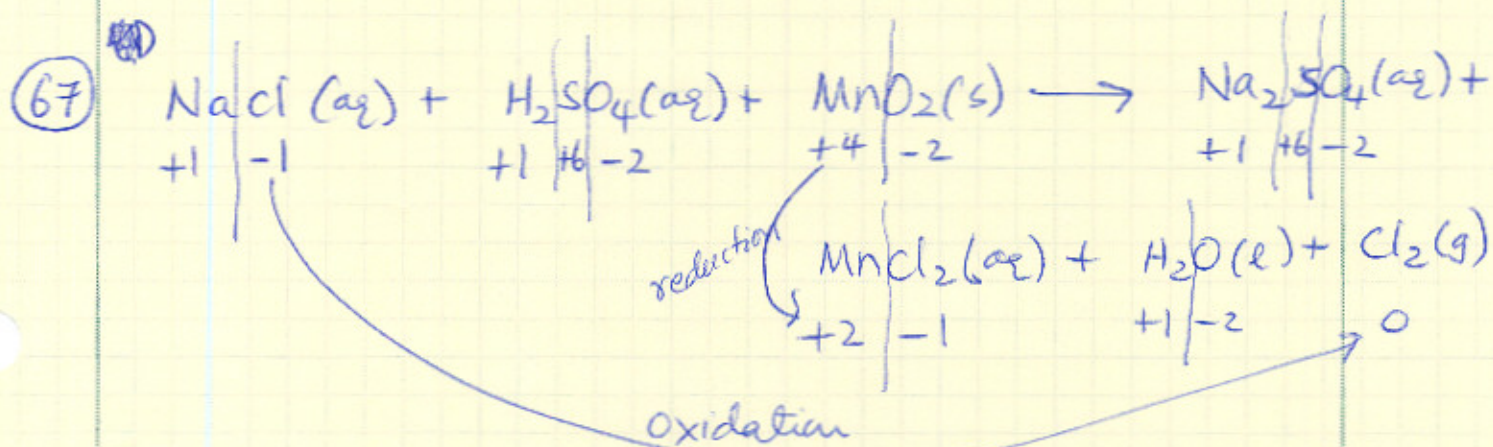 67 NaCl (aq) + H₂SO₄(aq) + MnO₂(s) → Na₂SO₄(aq) +
+1 | -1 +1 | +6 | -2 +4 | -2 +1 | +6 | -2
reduction MnCl₂(aq) + H₂O(l) + Cl₂(g)
+2 | -1 +1 | -2 0
oxidation